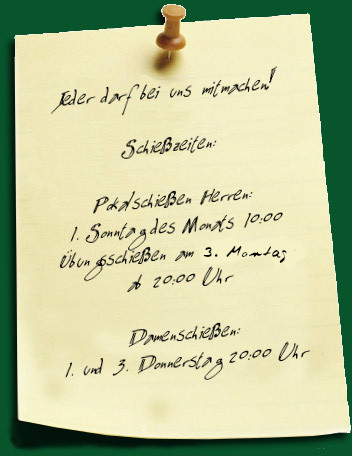 Jeder darf bei uns mitmachen!
Schießzeiten:
Pokalschießen Herren:
1. Sonntag des Monats 10:00
Übungsschießen am 3. Montag
ab 20:00 Uhr
Damenschießen:
1. und 3. Donnerstag 20:00 Uhr